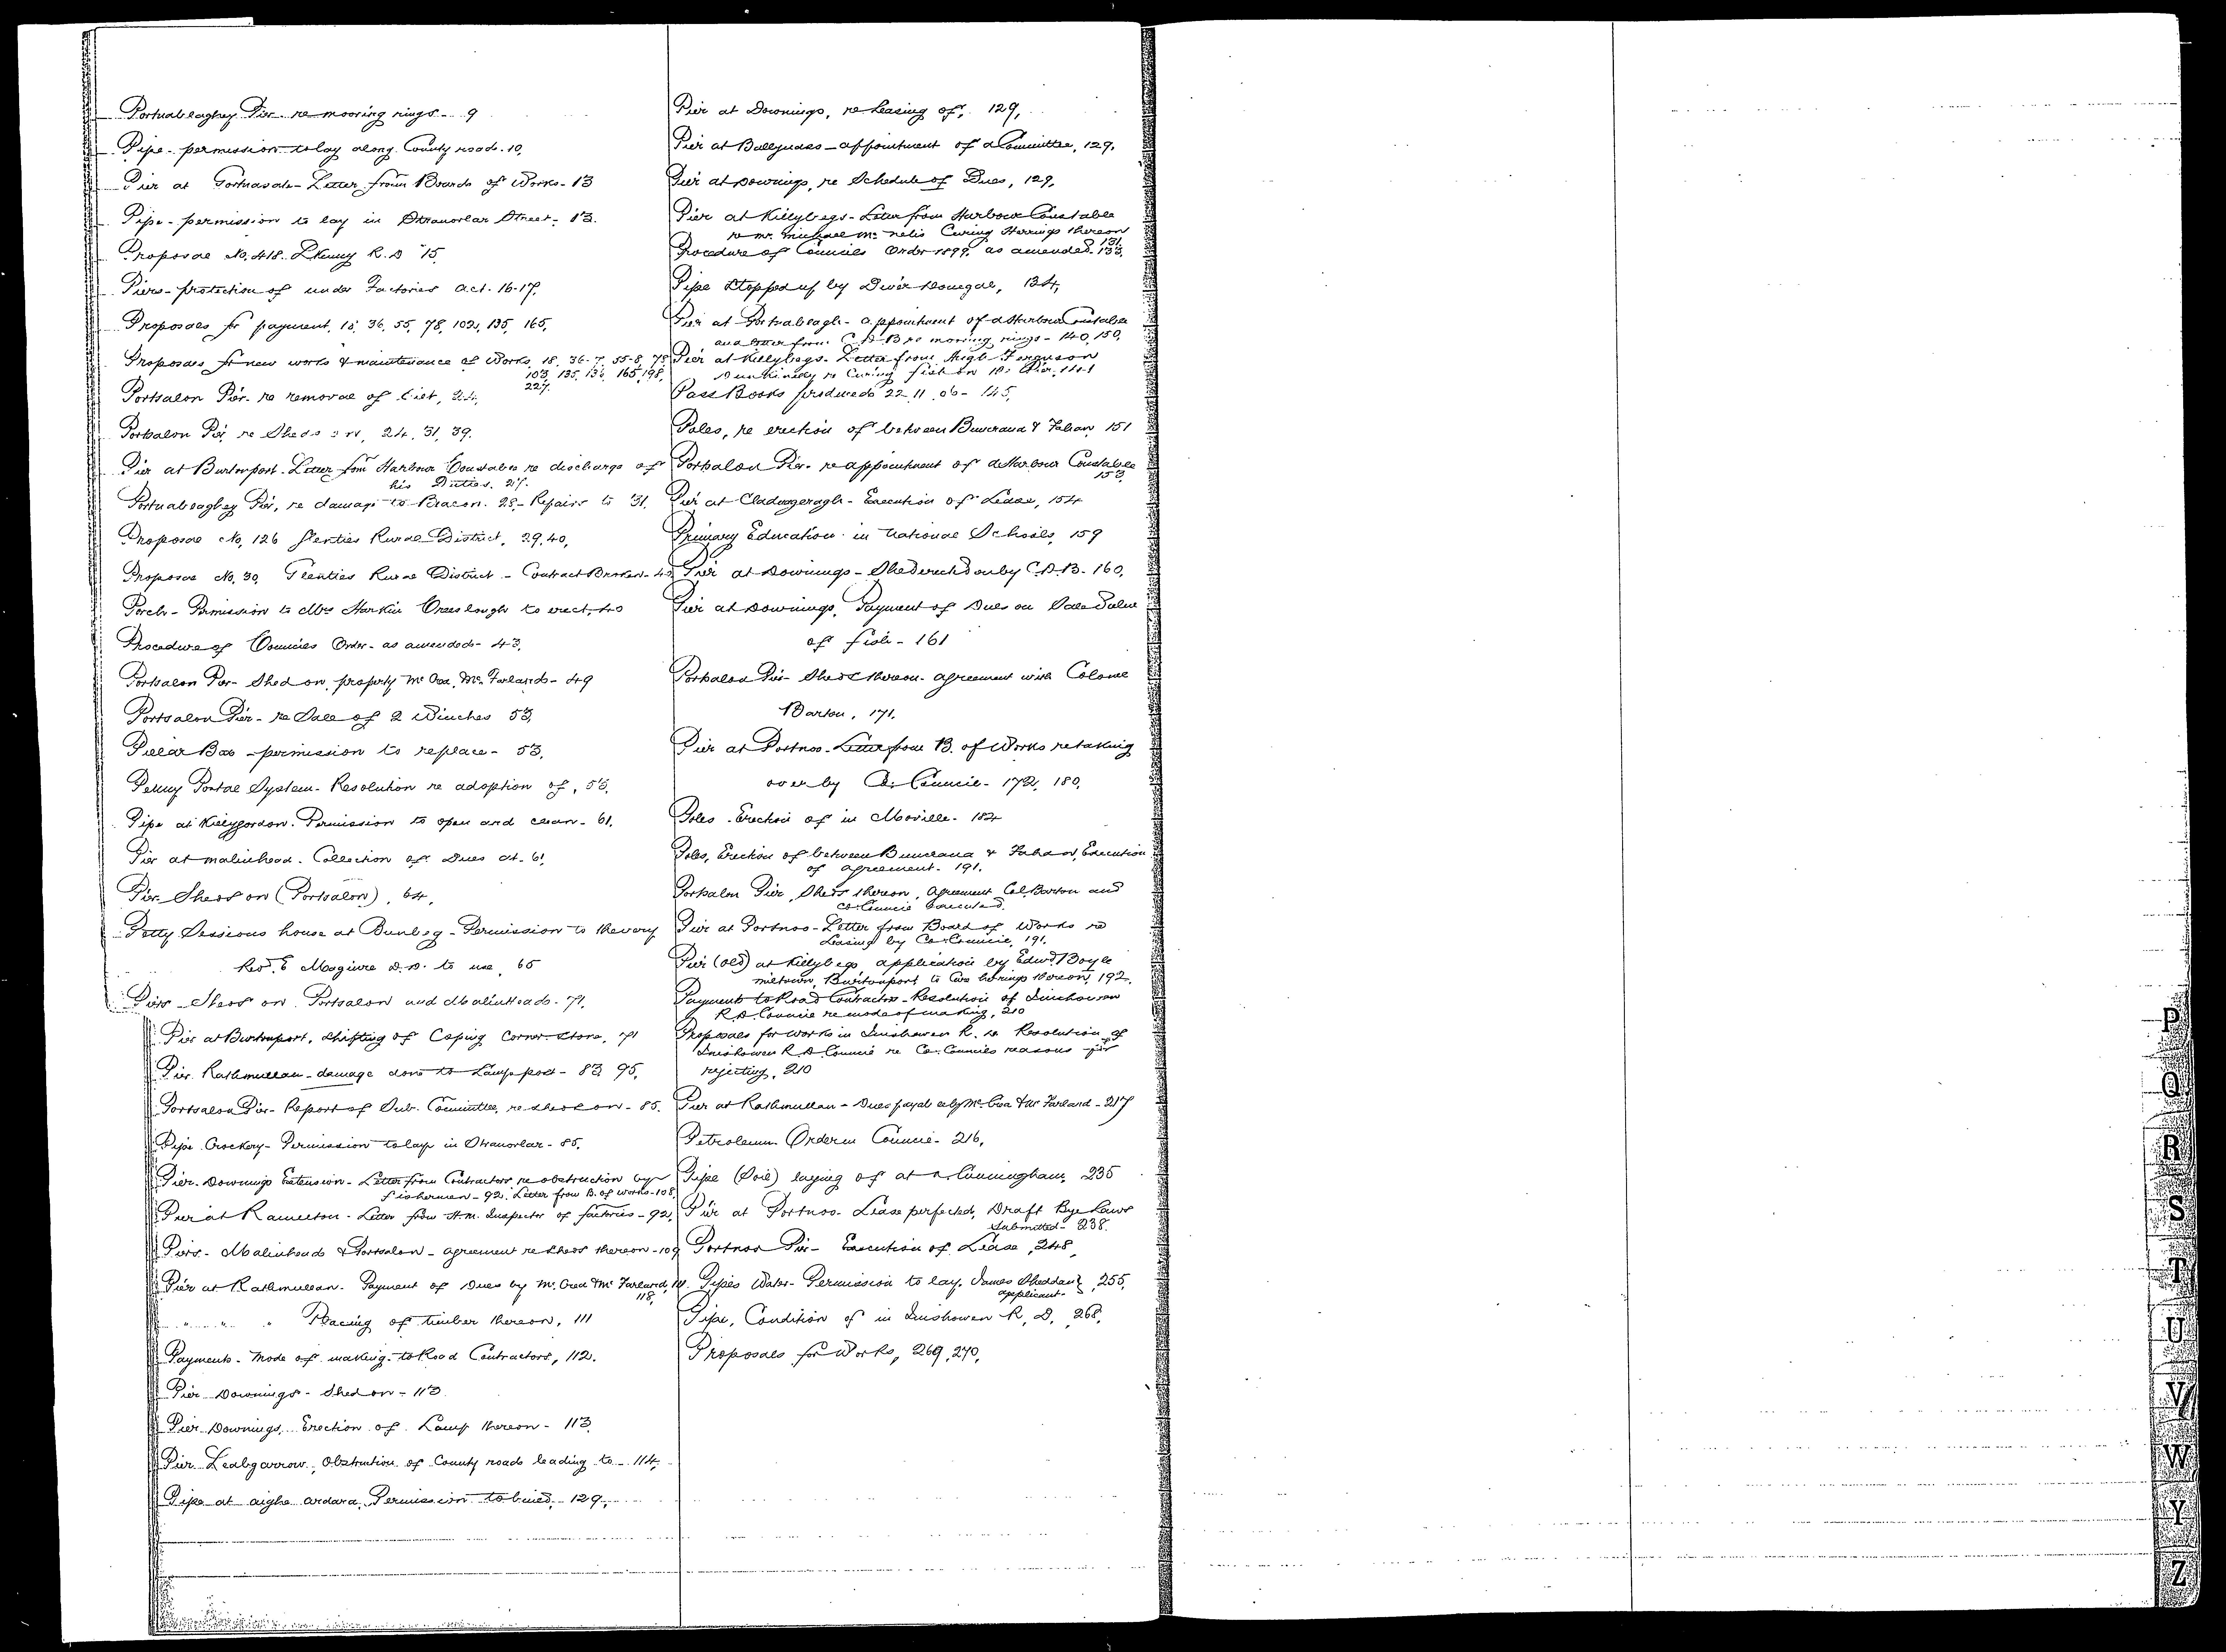 Portnablaghey Pier re mooring rings - 9
Pipe - permission to lay along County road. 10,
Pier at Portnasale - Letter from Board of Works - 13
Pipe - permission to lay in Stranorlar Street - 13.
Proposal No. 418. LKenny R.D 15,
Piers - protection of under Factories Act. 16-17,
Proposals for payment, 18, 36, 55, 78, 102, 135, 165,
Proposals for new works & maintenance of Works, 18, 36-7, 55-8, 78
103, 135, 136, 165, 198,
227.
Portsalon Pier - re removal of Silt, 24,
Portsalon Pier, re Sheds on, 24, 31, 39.
Pier at Burtonport - Letter from Harbour Constable re discharge of
his Duties. 27.
Portnablaghey Pier, re damage to Beacon. 28 - Repairs to 31,
Proposal No, 126 Glenties Rural District, 29, 40,
Proposal No. 30, Glenties Rural District - Contract Broken - 40
Porch - Permission to Mrs Harkin Creeslough to erect, 40
Procedure of Councils Order - as amended - 43,
Portsalon Pier - Shed on, property McCrea, McFarland - 49
Portsalon Pier - re Sale of 2 Winches 53,
Pillar Box - permission to replace - 53,
Penny Postal System - Resolution re adoption of, 55,
Pipe at Killygordon. Permission to open and clean - 61,
Pier at Malinhead. Collection of Dues at. 61,
Pier - Sheds on (Portsalon), 64,
Petty Sessions house at Bunbeg - Permission to the very
Revd. E Maguire D.D. to use, 65
Piers - Sheds on Portsalon and Malin Head - 71,
Pier at Burtonport, Shifting of Coping Corner Stone, 71
Pier Rathmullan - damage done to Lamp post - 83, 95,
Portsalon Pier - Report of Sub. Committee, re shed on - 85,
Pipe Crockery - Permission to lay in Stranorlar - 85,
Pier - Downings Extension - Letter from Contractors re obstruction by
fishermen - 92, Letter from B. of Works - 108,
Pier at Ramelton - Letter from H.M. Inspector of factories - 92,
Piers - Malinhead & Portsalon - agreement re sheds thereon - 109
Pier at Rathmullan. Payment of Dues by McCrea & McFarland, 111
118,
" " " Placing of timber thereon, 111
Payments - Mode of making - to Road Contractors, 112.
Pier Downings - Shed on - 113
Pier Downings, Erection of Lamp thereon - 113,
Pier Leabgarrow, Obstruction of County roads leading to - 114,
Pipe at Aighe Ardara, Permission to build, 129,
Pier at Downings, re Leasing of, 129,
Pier at Ballyness - appointment of a Committee, 129,
Pier at Downings, re Schedule of Dues, 129,
Pier at Killybegs - Letter from Harbour Constable
re Mr. Michael McNelis Curing Herrings thereon
131,
Procedure of Councils Order 1899, as amended. 133,
Pipe Stopped up by Diver Donegal, 134,
Pier at Portnablagh - appointment of a Harbour Constable
and letter from C.D.B re mooring rings - 140, 150,
Pier at Killybegs - Letter from Hugh Ferguson
Dunkineely re Curing fish on the Pier, 141
Pass Books produced 22.11.06 - 145,
Poles, re erection of between Buncrana & Fahan, 151
Portsalon Pier - re appointment of a Harbour Constable
153,
Pier at Cladnageragh - Execution of Lease, 154
Primary Education in National Schools, 159
Pier at Downings - Shed erected on by C.D.B. - 160,
Pier at Downings, Payment of Dues on Sale Value
of fish - 161
Portsalon Pier - Sheds thereon - agreement with Colonel
Barton, 171,
Pier at Portnoo - Letter from B. of Works re taking
over by Co. Council - 172, 180,
Poles - Erection of in Moville - 182
Poles, Erection of between Buncrana & Fahan, Execution
of agreement - 191.
Portsalon Pier, Sheds thereon, Agreement Col. Barton and
Co. Council Executed.
Pier at Portnoo - Letter from Board of Works re
Leasing by Co. Council, 191,
Pier (Old) at Killybegs, application by Edwd Boyle
Milltown, Burtonport to Cure herrings thereon, 192,
Payments to Road Contractors - Resolution of Inishowen
R.D. Council re mode of making, 210
Proposals for works in Inishowen R. D. Resolution of
Inishowen R.D Council re Co. Councils reasons for
rejecting, 210
Pier at Rathmullan - Dues payable by McCrea & McFarland - 217
Petroleum Order in Council - 216,
Pipe (Soil) laying of at Cunningham, 235
Pier at Portnoo - Lease perfected, Draft Bye Laws
Submitted - 238.
Portnoo Pier - Execution of Lease, 248,
Pipes Water - Permission to lay, James Sheddan, 255,
applicant -
Pipe, Condition of in Inishowen R. D, 268,
Proposals for Works, 269, 270,
P
Q
R
S
T
U
V
W
Y
Z